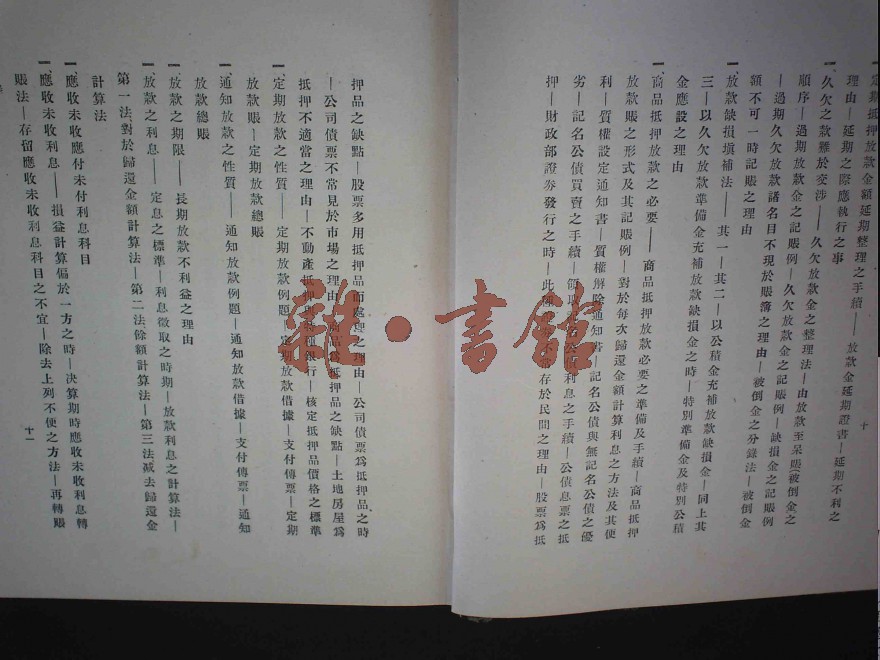 定期抵押放款金額延期整理之手續——放款金延期證書—延期不利之
理由—延期之際應執行之事
久欠之款難於交涉——久欠放款金之整理法—由放款至呆賬(被倒金之
順序—過期放款金之記賬例—久欠放款金之記賬例—缺損金之記賬例
—過期久欠放款諸名目不現於賬簿之理由—被倒金之分錄法—被倒金
額不可一時記賬之理由
放款缺損填補法——其一—其二—以公積金充補放款缺損金—同上其
三—以久欠放款準備金充補放款缺損金之時—特別準備金及特別公積
金應設之理由
商品抵押放款之必要——商品抵押放款必要之準備及手續—商品抵押
放款賬之形式及其記賬例—對於每次歸還金額計算利息之方法及其便
利—質權設定通知書—質權解除通知書—記名公債與無記名公債之優
劣—記名公債買賣之手續—領取記名公債利息之手續—公債息票之抵
押—財政部證券發行之時—此種 存於民間之理由—股票為抵
十
押品之缺點—股票多用抵押品而處理之理由—公司債票為抵押品之時
—公司債票不常見於市場之理由—商品為抵押品之缺點—土地房屋為
抵押不適當之理由—不動產抵押與 銀行—核定抵押品價格之標準
定期放款之性質——定期放款例題—定期放款借據—支付傳票—定期
放款賬—定期放款總賬
通知放款之性質——通知放款例題—通知放款借據—支付傳票—通知
放款總賬
放款之期限——長期放款不利益之理由
放款之利息——定息之標準—利息徵取之時期—放款利息之計算法—
第一法、對於歸還金額計算法—第二法、餘額計算法—第三法減去歸還金
計算法
應收未收應付未付利息科目
應收未收利息——損益計算偏於一方之時—決算期時應收未收利息轉
賬法—存留應收未收利息科目之不宜—除去上列不便之方法—再轉賬
十一
新·書館